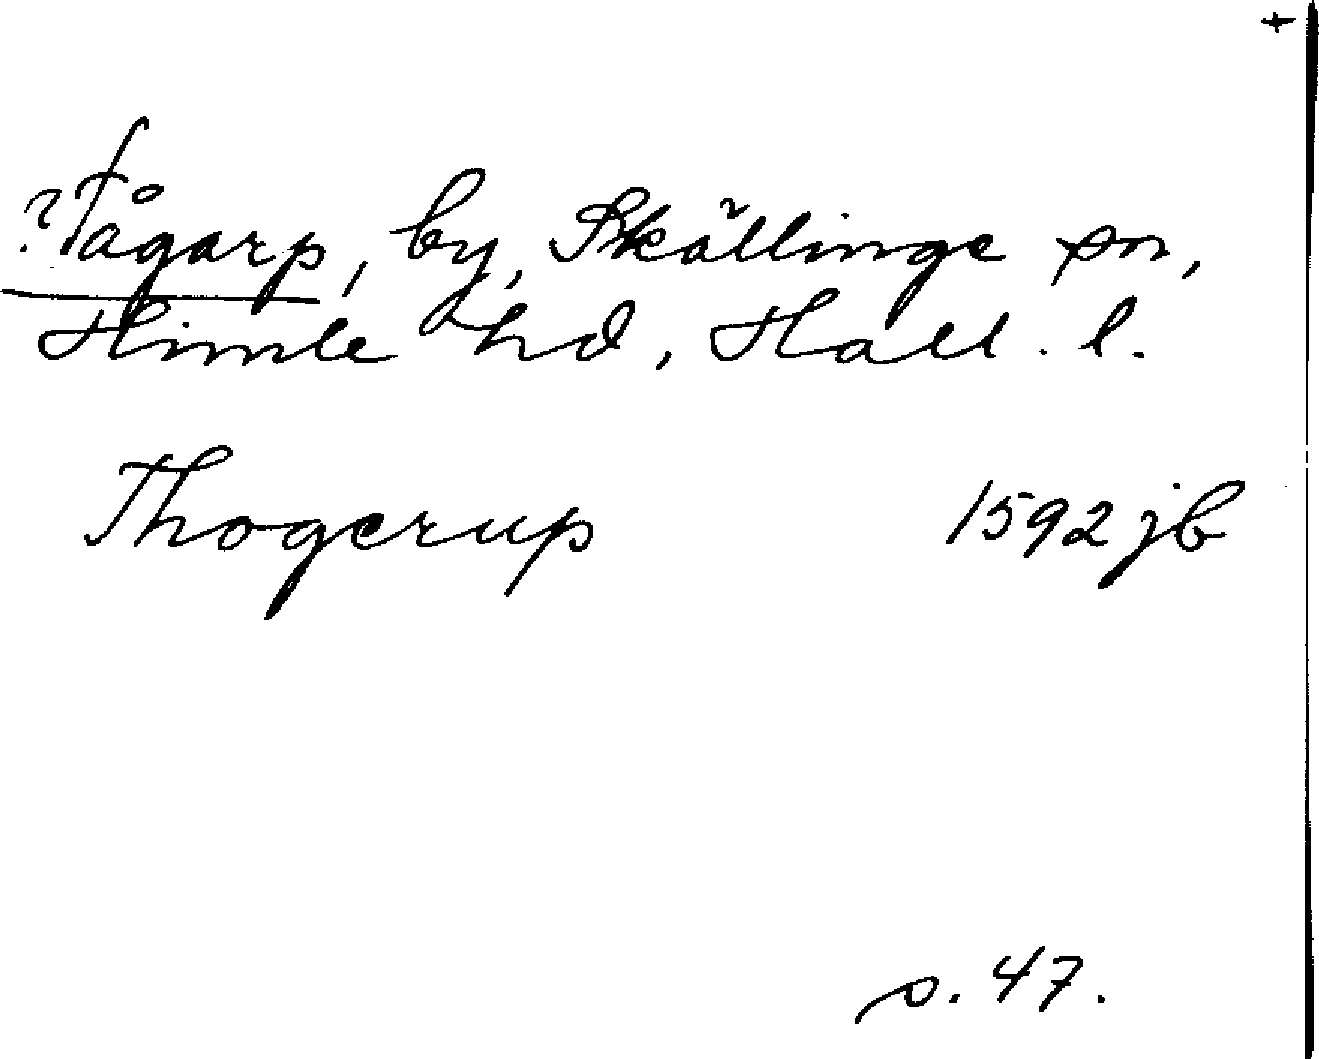 +
?Tågarp, by, Skällinge sn,
Himle hd, Hall. l.
Thogerup 1592 jb
s. 47.